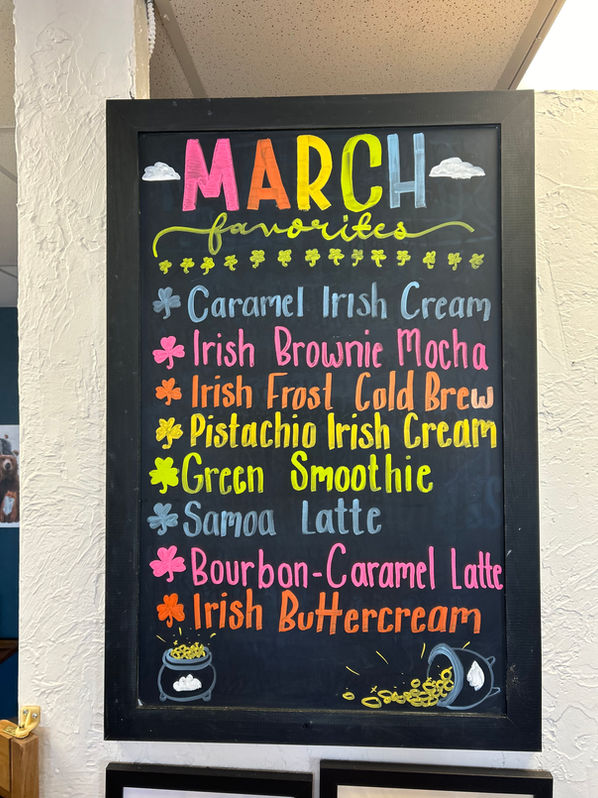 MARCH
favorites
Caramel Irish Cream
Irish Brownie Mocha
Irish Frost Cold Brew
Pistachio Irish Cream
Green Smoothie
Samoa Latte
Bourbon-Caramel Latte
Irish Buttercream